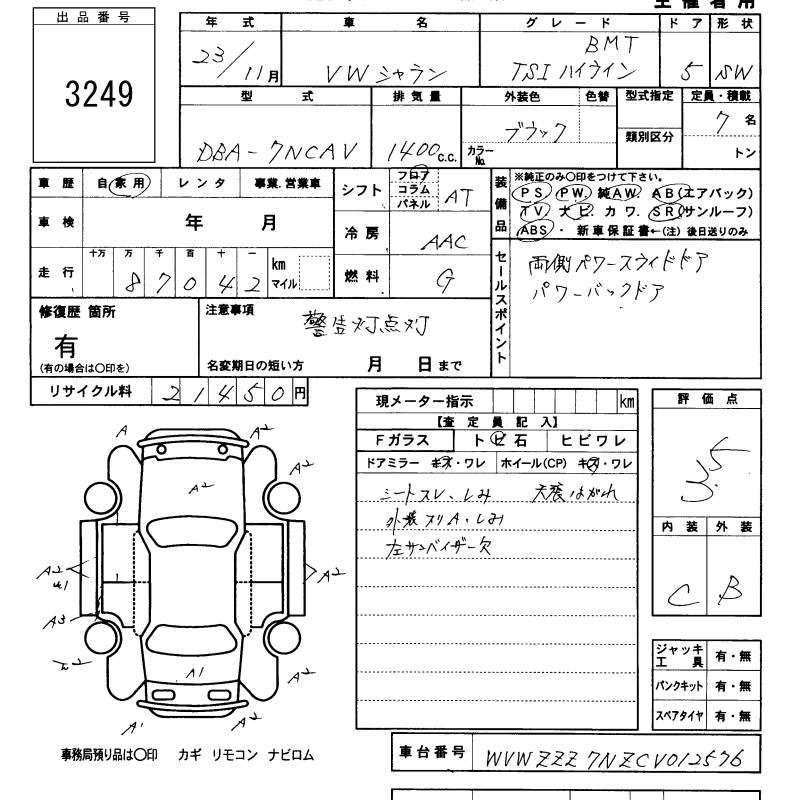 主催者用
出品番号
3249
年式 車名 グレード ドア 形状
23/11月 VW シャラン BMT TSI ハイライン 5 SW
型式 排気量 外装色 色替 型式指定 定員・積載
類別区分
DBA-7NCAV 1400c.c. カラーNo. ブラック 7名
トン
車歴 自家用 レンタ 事業.営業車
シフト フロア コラム パネル AT
車検 年 月
冷房 AAC
走行 十万 万 千 百 十 一
87042 km マイル
燃料 G
装備品
※純正のみ○印をつけて下さい。
PS PW. 純AW. AB(エアバック)
TV. ナビ. カワ. SR(サンルーフ)
ABS・新車保証書←(注) 後日送りのみ
セールスポイント
両側パワースライドドア
パワーバックドア
修復歴 箇所
有
(有の場合は○印を)
注意事項
警告灯点灯
名変期日の短い方 月 日まで
リサイクル料 21450円
現メーター指示 km
【査定員記入】
Fガラス トビ石 ヒビワレ
ドアミラー キズ・ワレ ホイール(CP) キズ・ワレ
シートスレ、しみ 天張はがれ
外装スリA、しみ
左サンバイザー欠
評価点
3.5
内装 外装
C B
A A2
A2
A2
A2
A2
A3
A2
A1
A2
A1 A2
ジャッキ 工具 有・無
パンクキット 有・無
スペアタイヤ 有・無
事務局預り品は○印 カギ リモコン ナビロム
車台番号 WVWZZZ7NZCV012576